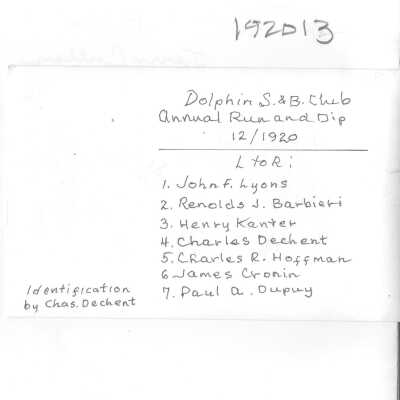 192013
Dolphin S. & B. Club
Annual Run and Dip
12/1920
L to R:
1. John F. Lyons
2. Renolds J. Barbieri
3. Henry Kanter
4. Charles Dechent
5. Charles R. Hoffman
6 James Cronin
7. Paul A. Dupuy
Identification
by Chas. Dechent